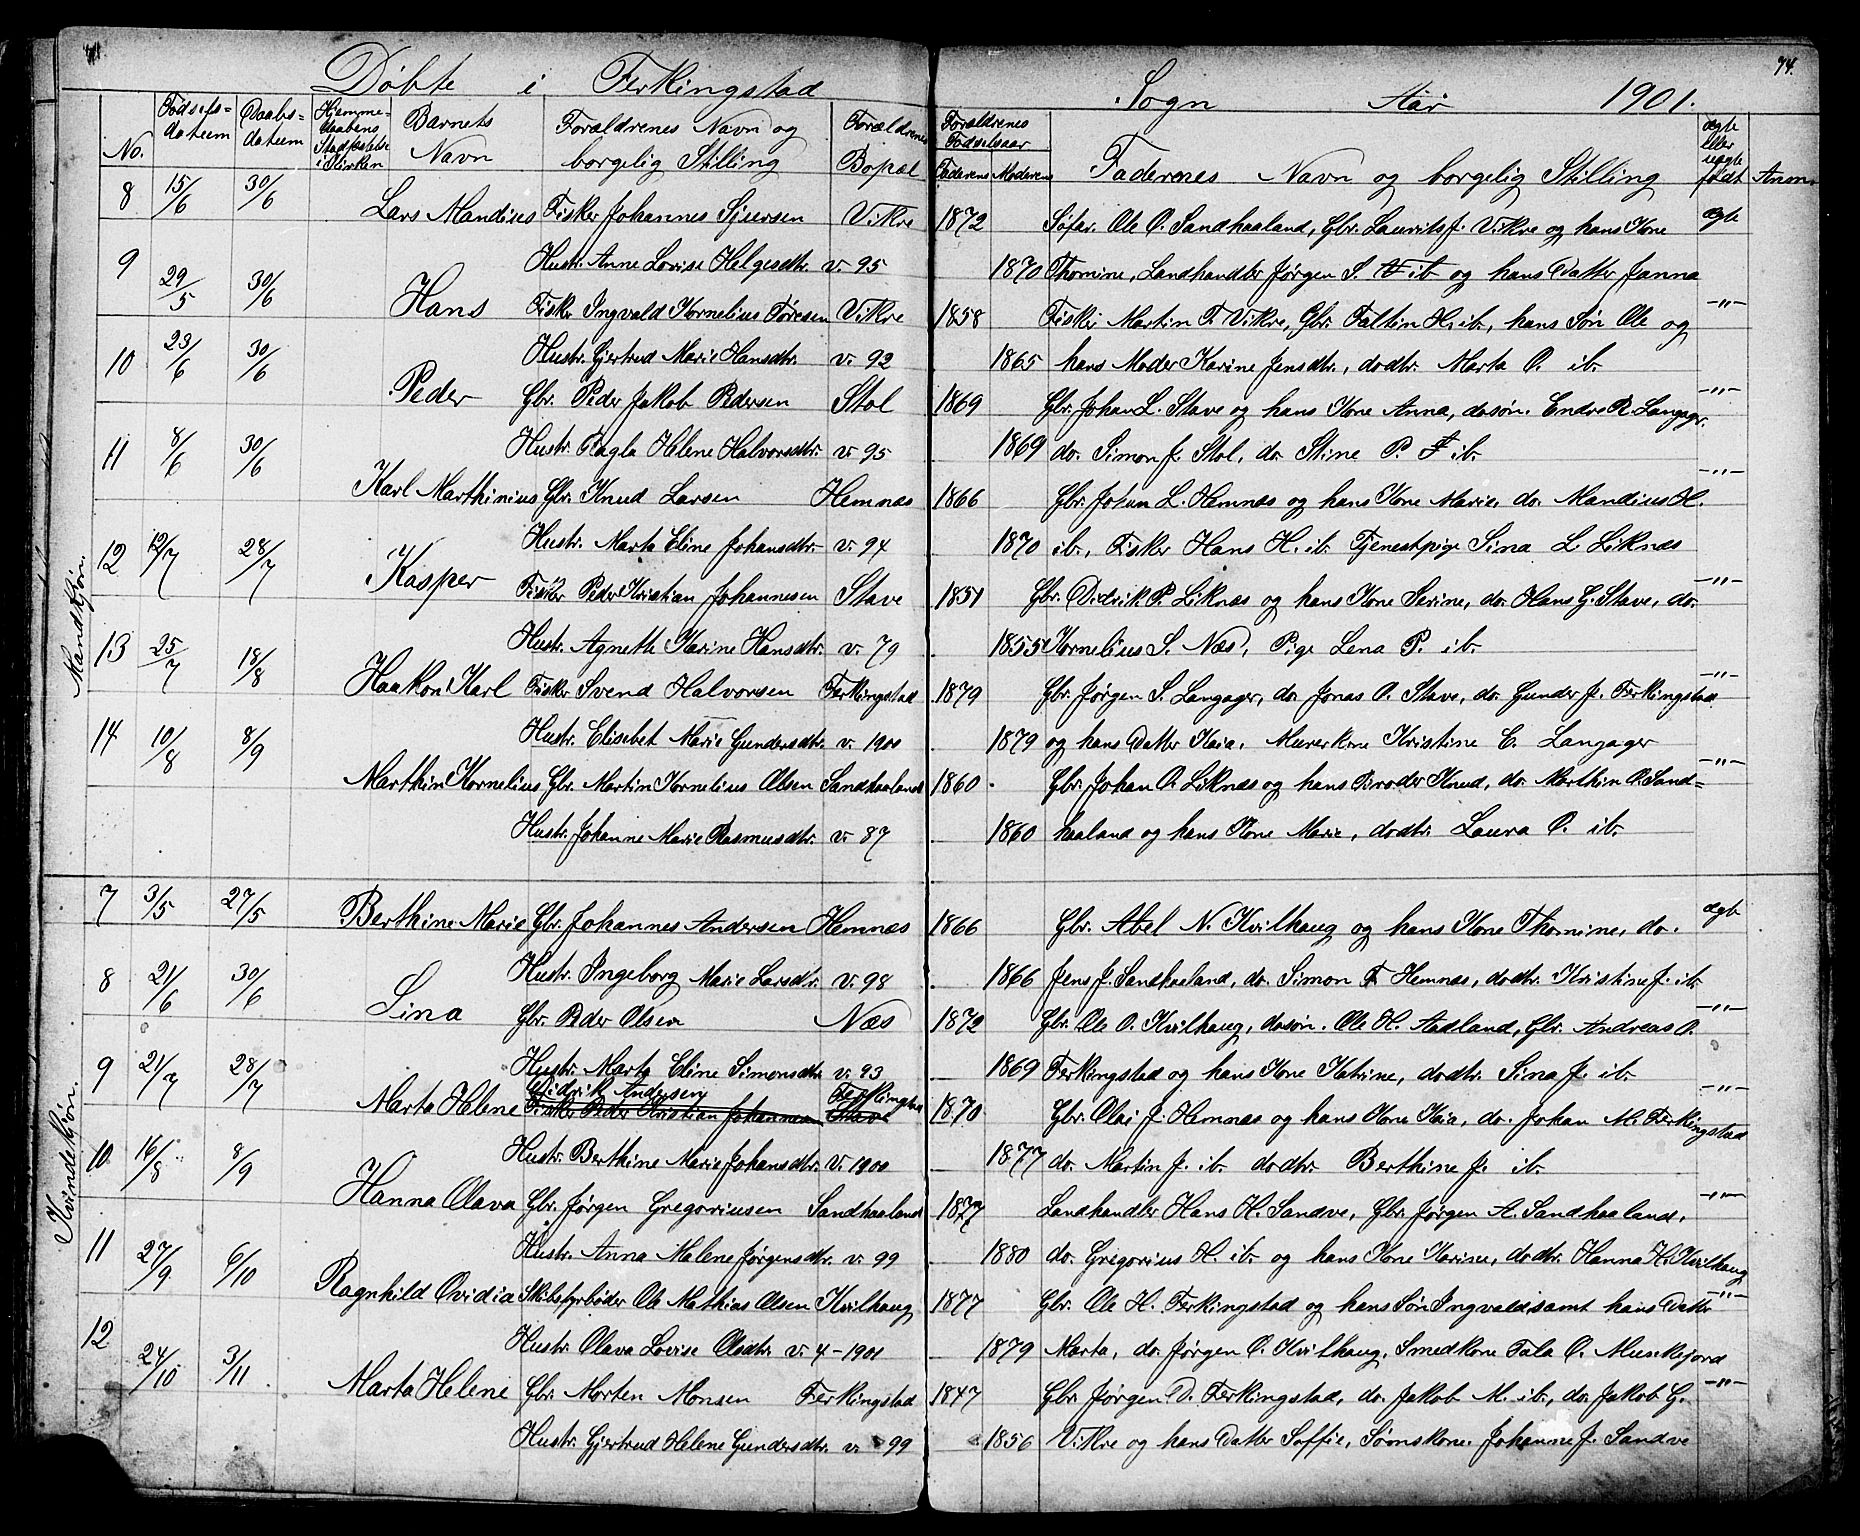 74.
Døbte i Ferkingstad Sogn Aar 1901.
No. Fødsels-datum Daabs-datum Hjemme-daabens Stadfæstelse i Kirken Barnets Navn Forældrenes Navn og borgelig Stilling Forældrenes Bopæl Forældrenes Fødselsaar Faderens Moderens Faderenes Navn og borgelig Stilling ægte eller uægte født Anm.
Mandkjøn.
8 15/6 30/6 Lars Mandius Fisker Johannes Sjursen Vikre 1872 Søfar. Ole O. Sandhaaland, Gbr. Laurits J. Vikre og hans Kone ægte
Hustr. Anne Lovise Helgesdtr. v. 95 1870 Thomine, Landhandler Jørgen S. ib. og hans Datter Janna
9 29/5 30/6 Hans Fisker Ingvald Kornelius Tøresen Vikre 1858 Fisker Martin T. Vikre, Gbr. Faltin H. ib., hans Søn Ole og -"-
Hustr. Gjertrud Marie Hansdtr. v. 92 1865 hans Moder Karine Jensdtr., dodtr. Marta O. ib.
10 23/6 30/6 Peder Gbr. Peder Jakob Pedersen Stol 1869 Gbr. Johan L. Stave og hans Kone Anna, dosøn. Endre R. Langagr. -"-
Hustr. Ragla Helene Halvorsdtr. v. 95 1869 do. Simon J. Stol, do. Stine P. ib.
11 8/6 30/6 Karl Marthinius Gbr. Knud Larsen Hemnæs 1866 Gbr. Johan L. Hemnæs og hans Kone Marie, do. Mandius H. -"-
Hustr. Marta Eline Johansdtr. v. 94 1870 ib., Fisker Hans H. ib. Tjenestpige Sina L. Liknæs
12 12/7 28/7 Kasper Fisker Peder Kristian Johannesen Stave 1851 Gbr. Didrik P. Liknæs og hans Kone Serine, do. Hans G. Stave, do. -"-
Hustr. Agnethe Karine Hansdtr. v. 79 1855 Kornelius S. Næs, Pige Lena P. ib.
13 25/7 18/8 Haakon Karl Fisker Svend Halvorsen Ferkingstad 1879 Gbr. Jørgen S. Langager, do. Jonas O. Stave, do. Gunder J. Ferkingstad -"-
Hustr. Elisebet Marie Gundersdtr. v. 1900 1879 og hans Datter Kaia. Murerkone Kristine C. Langager
14 10/8 8/9 Marthin Kornelius Gbr. Martin Kornelius Olsen Sandhaaland 1860 Gbr. Johan O. Liknæs og hans Broder Knud, do. Marthin O. Sand= -"-
Hustr. Johanne Marie Rasmusdtr. v. 87 1860 haaland og hans Kone Marie, dodtr. Laura O. ib.
Kvindekjøn.
7 3/5 27/5 Berthine Marie Gbr. Johannes Andersen Hemnæs 1866 Gbr. Abel N. Kvilhaug og hans Kone Thomine, do. ægte
Hustr. Ingeborg Marie Larsdtr. v. 98 1866 Jens J. Sandhaaland, do. Simon T. Hemnæs, dodtr. Kristine J. ib.
8 21/6 30/6 Sina Gbr. Peder Olsen Næs 1872 Gbr. Ole O. Kvilhaug, dosøn. Ole H. Aadland, Gbr. Andreas O. -"-
Hustr. Marta Eline Simonsdtr. v. 93 1869 Ferkingstad og hans Kone Katrine, dodtr. Sina J. ib.
9 21/7 28/7 Marta Helene Didrik Andersen Fisker Peder Kristian Johannesen Ferkingstad Stave 1870 Gbr. Olai J. Hemnæs og hans Kone Kaia, do. Johan M. Ferkingstad -"-
Hustr. Berthine Marie Johansdtr. v. 1900 1877 do. Martin J. ib. dodtr. Berthine J. ib.
10 16/8 8/9 Hanna Olava Gbr. Jørgen Gregoriusen Sandhaaland 1877 Landhandler Hans H. Sandve, Gbr. Jørgen A. Sandhaaland, -"-
Hustr. Anna Malene Jørgensdtr. v. 99 1880 do. Gregorius H. ib. og hans Kone Karine, dodtr. Hanna H. Kvilhaug
11 27/9 6/10 Ragnhild Ovidia Skibsfyrbøder Ole Mathias Olsen Kvilhaug 1877 Gbr. Ole H. Ferkingstad og hans Søn Ingvald samt hans Datter -"-
Hustr. Olava Lovise Olsdtr. v. 4-1901 1879 Marta, do. Jørgen O. Kvilhaug, Smedkone Tala O. Munksjord
12 24/10 3/11 Marta Helene Gbr. Morten Monsen Ferkingstad 1847 Gbr. Jørgen D. Ferkingstad, do. Jakob M. ib., do. Jakob G. -"-
Hustr. Gjertrud Helene Gundersdtr. v. 99 1856 Vikre og hans Datter Soffie, Sømskone. Johanne J. Sandve